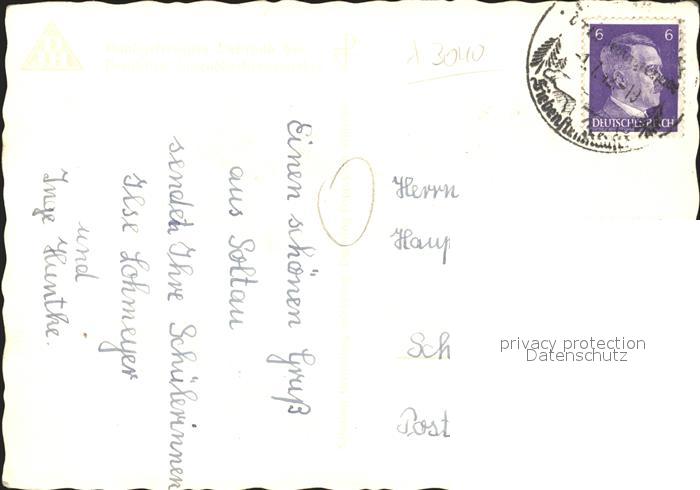 λ 3040
6 6
DEUTSCHES REICH
Einen schönen Gruß
aus Soltau
senden Ihre Schülerinnen
Ilse Lohmeyer
und
Inge Hunthe.
Herrn
Haup
Sch
Post
privacy protection
Datenschutz